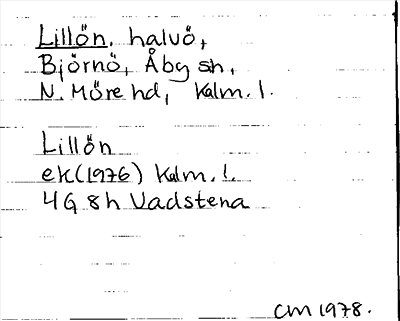 Lillön, halvö,
Björnö, Åby sn,
N. Möre hd, Kalm. l.
Lillön
ek (1976) Kalm. l.
4G 8h Vadstena
CM 1978.